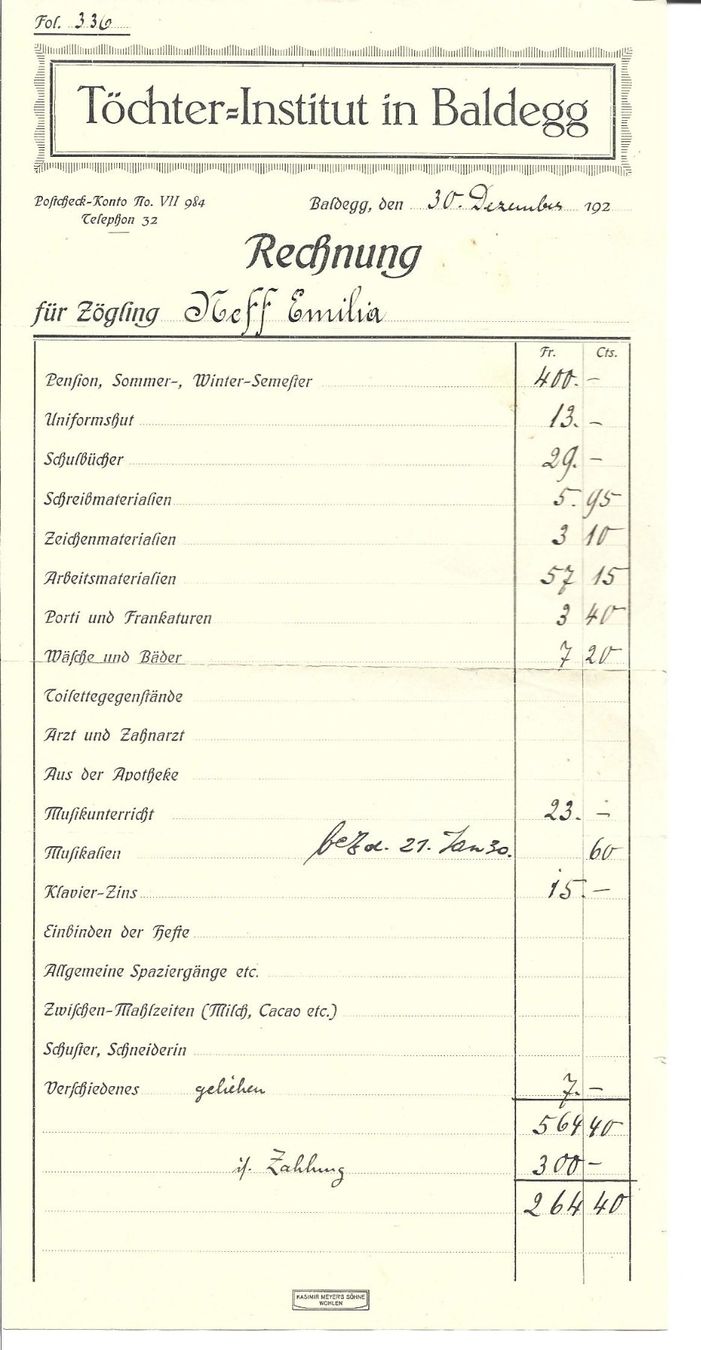 Fol. 336
Töchter-Institut in Baldegg
Postcheck-Konto No. VII 984
Telephon 32
Baldegg, den 30. Dezember 192
Rechnung
für Zögling Neff Emilia
Fr. Cts.
Pension, Sommer-, Winter-Semester 400.–
Uniformshut 13.–
Schulbücher 29.–
Schreibmaterialien 5.95
Zeichenmaterialien 3 10
Arbeitsmaterialien 57 15
Porti und Frankaturen 3 40
Wäsche und Bäder 7 20
Toilettegegenstände
Arzt und Zahnarzt
Aus der Apotheke
Musikunterricht 23.–
Musikalien bezd. 21. Jan 30. 60
Klavier-Zins 15.–
Einbinden der Hefte
Allgemeine Spaziergänge etc.
Zwischen-Mahlzeiten (Milch, Cacao etc.)
Schuster, Schneiderin
Verschiedenes geliehen 7.–
564 40
Zahlung 300 –
264 40
KASIMIR MEYER'S SÖHNE
WOHLEN